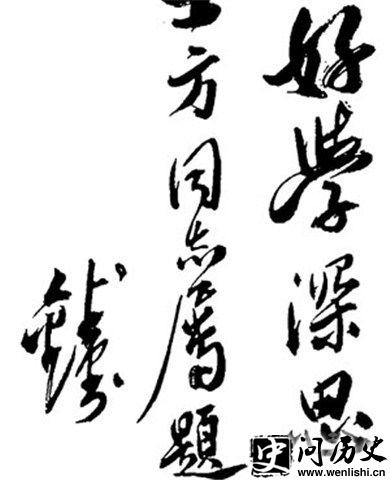 好学深思
方同志属題
史 问历史
www.wenlishi.cn